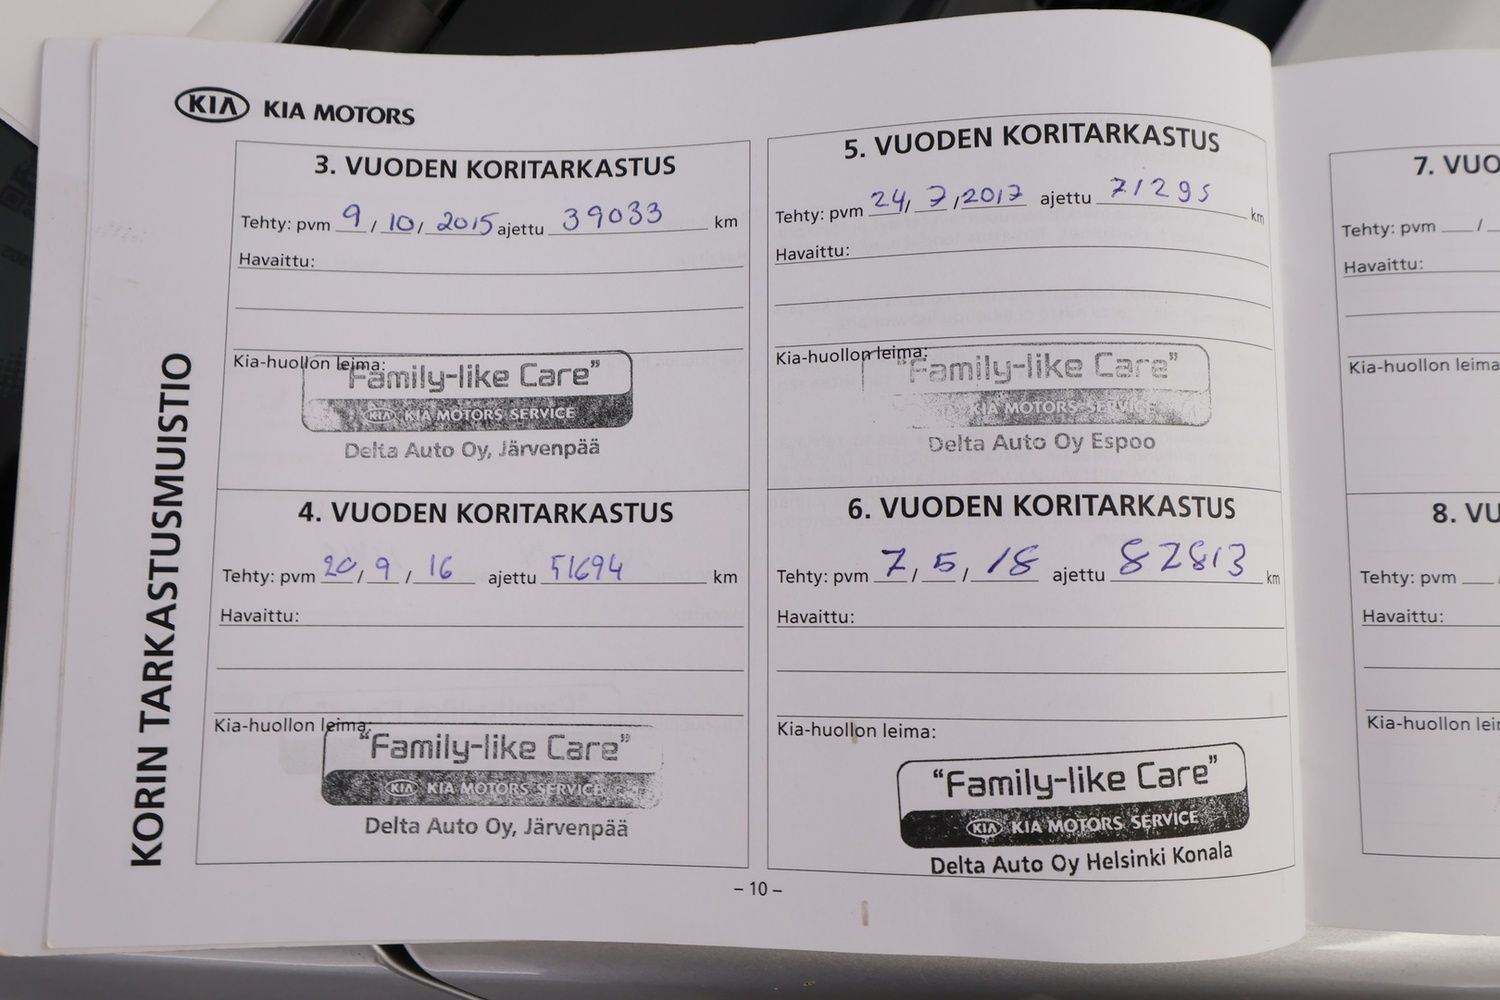 KIA KIA MOTORS
KORIN TARKASTUSMUISTIO
3. VUODEN KORITARKASTUS
Tehty: pvm 9 / 10 / 2015 ajettu 39033 km
Havaittu:
Kia-huollon leima:
"Family-like Care"
KIA KIA MOTORS SERVICE
Delta Auto Oy, Järvenpää
4. VUODEN KORITARKASTUS
Tehty: pvm 20 / 9 / 16 ajettu 51694 km
Havaittu:
Kia-huollon leima:
"Family-like Care"
KIA KIA MOTORS SERVICE
Delta Auto Oy, Järvenpää
5. VUODEN KORITARKASTUS
Tehty: pvm 24 / 7 / 2017 ajettu 71295 km
Havaittu:
Kia-huollon leima:
"Family-like Care"
KIA MOTORS SERVICE
Delta Auto Oy Espoo
6. VUODEN KORITARKASTUS
Tehty: pvm 7 / 5 / 18 ajettu 82813 km
Havaittu:
Kia-huollon leima:
"Family-like Care"
KIA KIA MOTORS SERVICE
Delta Auto Oy Helsinki Konala
– 10 –
7. VUO
Tehty: pvm /
Havaittu:
Kia-huollon leima
8. VU
Tehty: pvm
Havaittu:
Kia-huollon lei